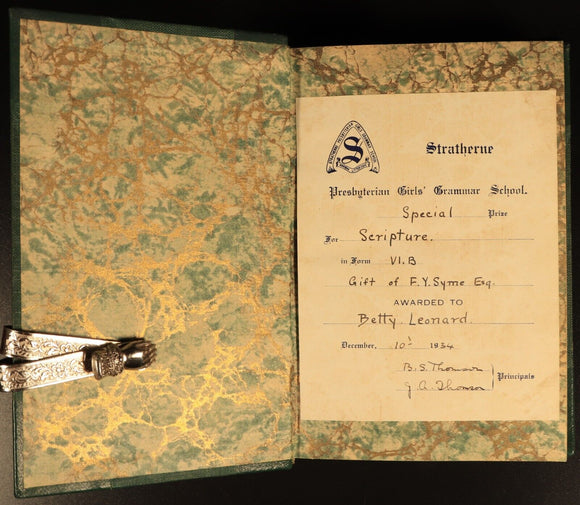 S
Stratherne
Presbyterian Girls' Grammar School.
Special Prize
For Scripture.
in Form VI.B
Gift of F.Y. Syme Esq.
AWARDED TO
Betty Leonard.
December, 10 1934
B.S. Thomson
J.A. Thomson
Principals